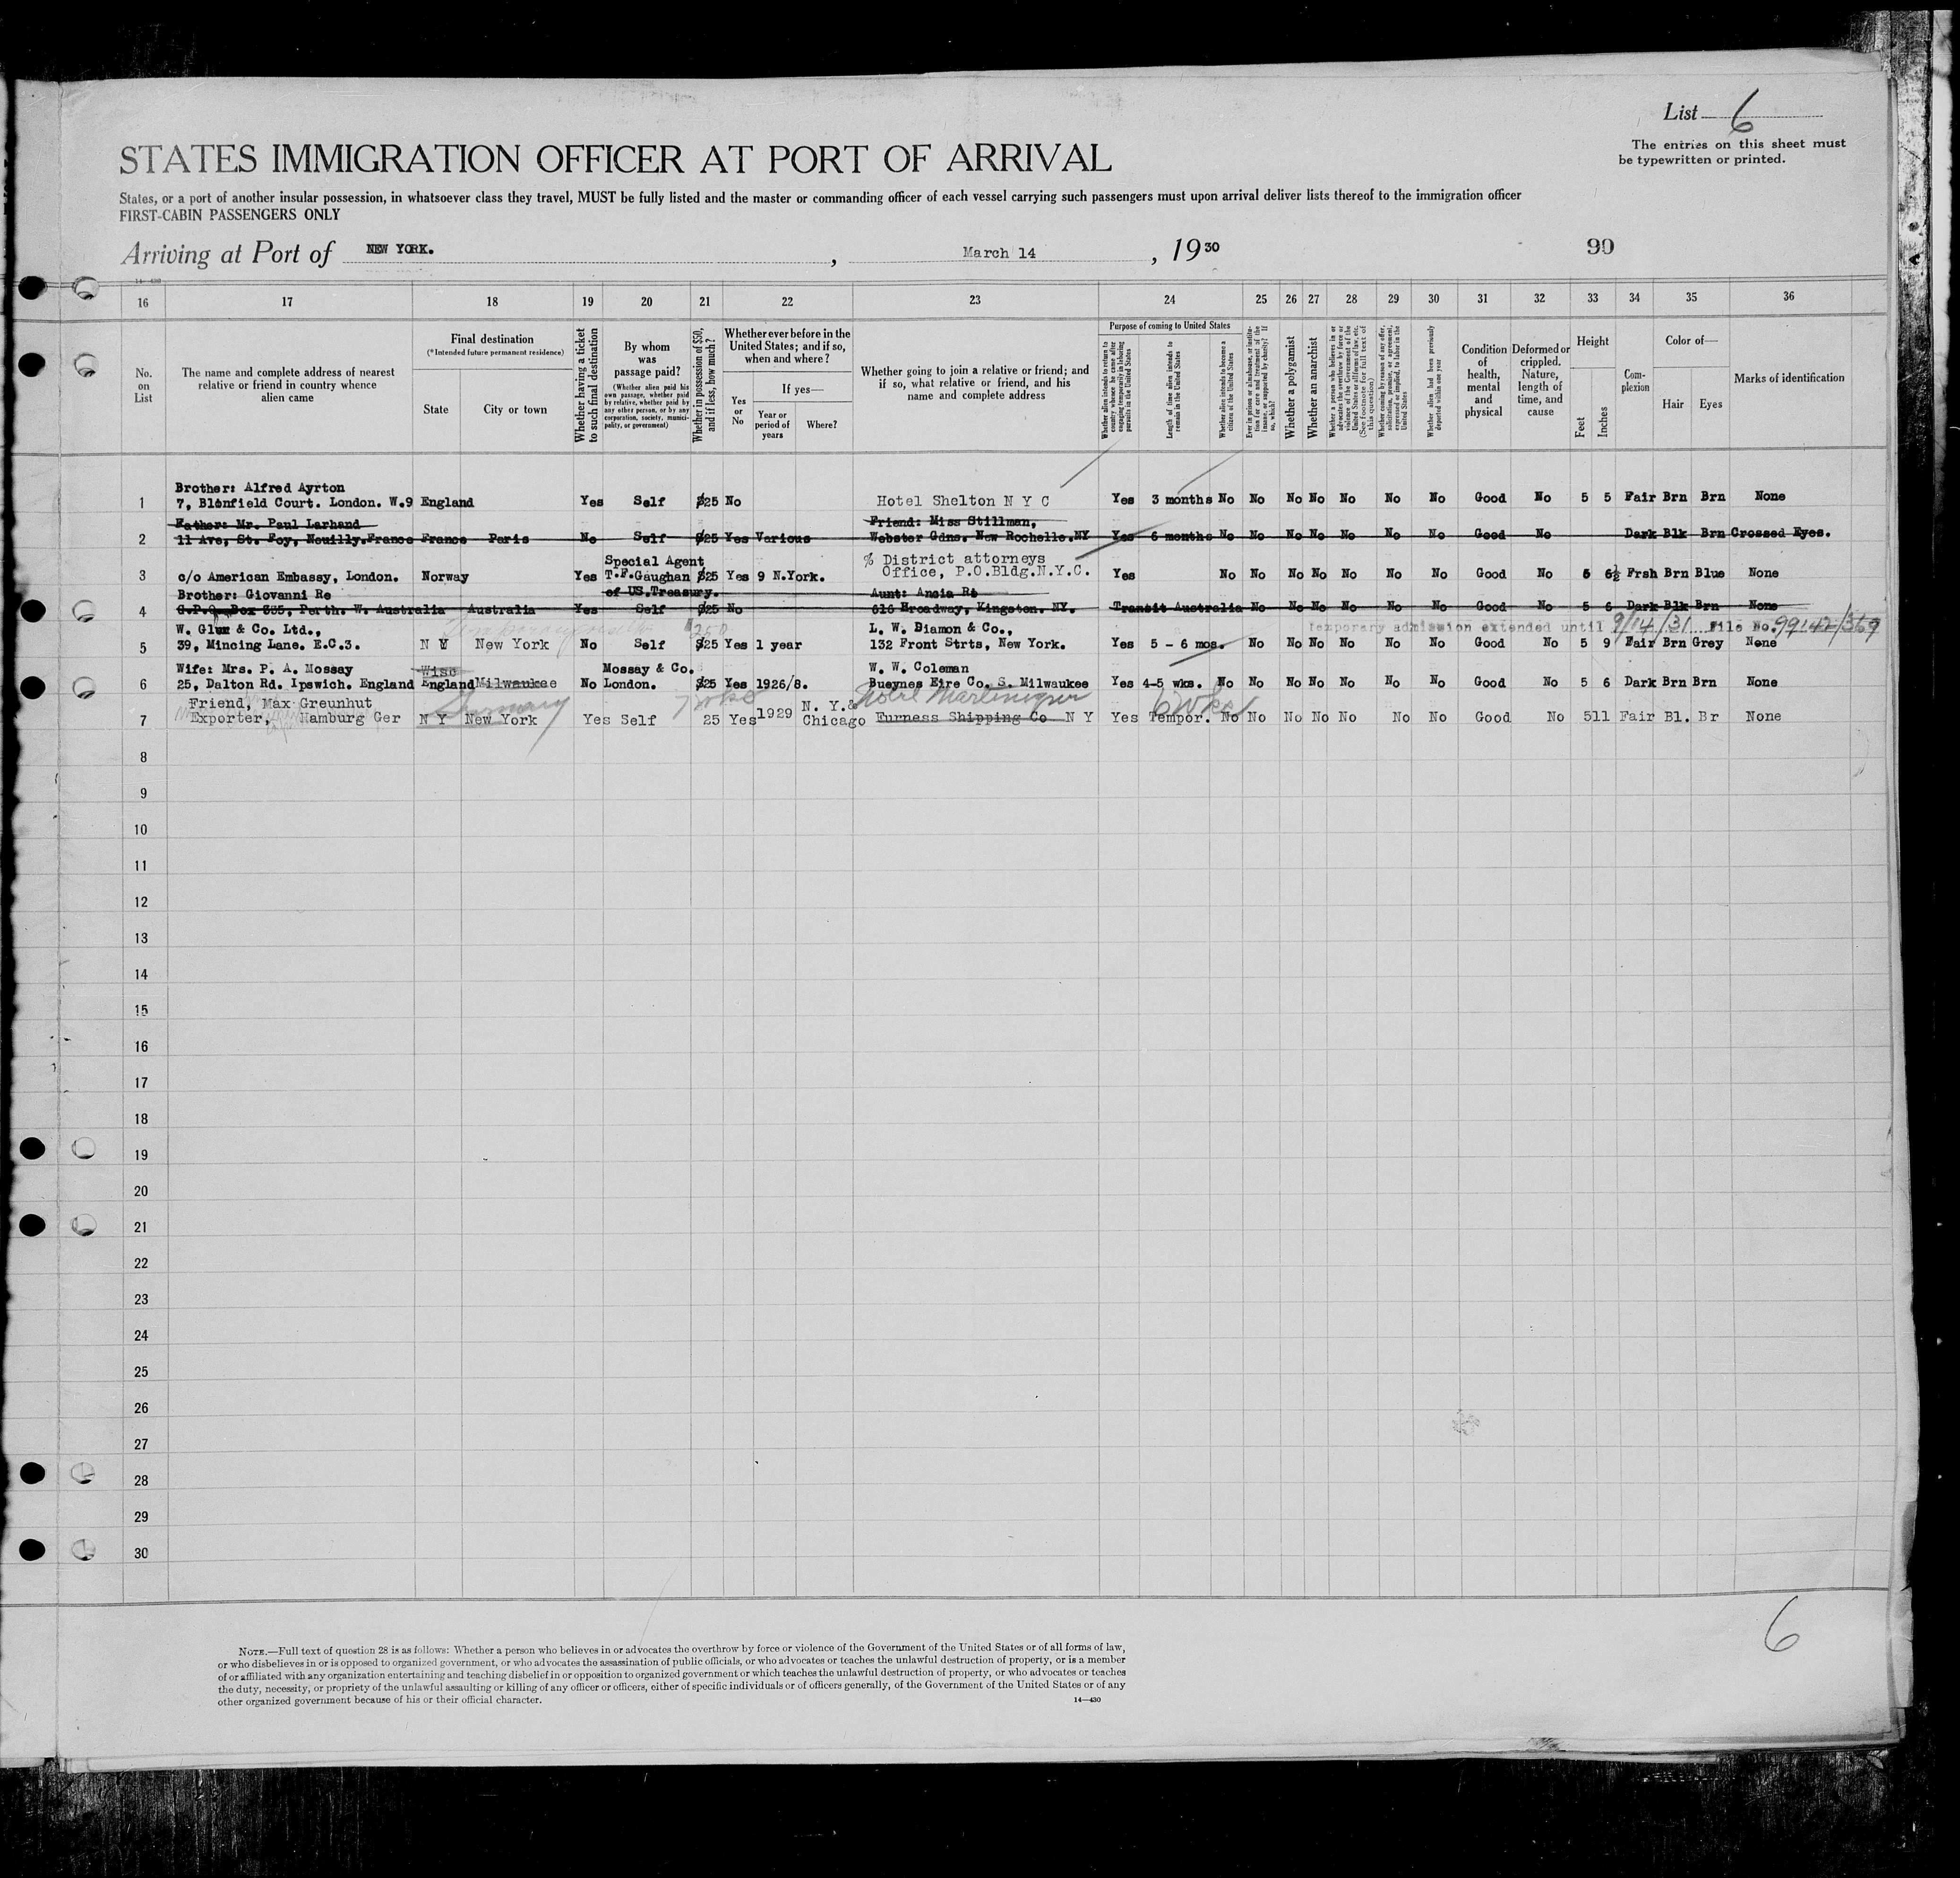 List 6
The entries on this sheet must
be typewritten or printed.
STATES IMMIGRATION OFFICER AT PORT OF ARRIVAL
States, or a port of another insular possession, in whatsoever class they travel, MUST be fully listed and the master or commanding officer of each vessel carrying such passengers must upon arrival deliver lists thereof to the immigration officer
FIRST-CABIN PASSENGERS ONLY
Arriving at Port of NEW YORK. , March 14 , 1930 99
14—430
16 17 18 19 20 21 22 23 24 25 26 27 28 29 30 31 32 33 34 35 36
No. on List
The name and complete address of nearest relative or friend in country whence alien came
Final destination
(*Intended future permanent residence)
State
City or town
Whether having a ticket to such final destination
By whom was passage paid?
(Whether alien paid his own passage, whether paid by relative, whether paid by any other person, or by any corporation, society, municipality, or government)
Whether in possession of $50, and if less, how much?
Whether ever before in the United States; and if so, when and where?
Yes or No
If yes—
Year or period of years
Where?
Whether going to join a relative or friend; and if so, what relative or friend, and his name and complete address
Purpose of coming to United States
Whether alien intends to return to country whence he came after engaging temporarily in laboring pursuits in the United States
Length of time alien intends to remain in the United States
Whether alien intends to become a citizen of the United States
Ever in prison or almshouse, or institution for care and treatment of the insane, or supported by charity? If so, which?
Whether a polygamist
Whether an anarchist
Whether a person who believes in or advocates the overthrow by force or violence of the Government of the United States or all forms of law, etc. (See footnote for full text of this question)
Whether coming by reason of any offer, solicitation, promise, or agreement, expressed or implied, to labor in the United States
Whether alien had been previously deported within one year
Condition of health, mental and physical
Deformed or crippled. Nature, length of time, and cause
Height
Feet
Inches
Complexion
Color of—
Hair
Eyes
Marks of identification
Brother: Alfred Ayrton
1 7, Blenfield Court. London. W.9 England Yes Self $25 No Hotel Shelton N Y C Yes 3 months No No No No No No No Good No 5 5 Fair Brn Brn None
Father: Mr. Paul Larhand Friend: Miss Stillman,
2 11 Ave, St. Foy, Neuilly.France France Paris No Self $25 Yes Various Webster Gdns. New Rochelle.NY Yes 6 months No No No No No No No Good No Dark Blk Brn Crossed Eyes.
Special Agent % District attorneys
3 c/o American Embassy, London. Norway Yes T.F.Gaughan $25 Yes 9 N.York. Office, P.O.Bldg.N.Y.C. Yes No No No No No No No Good No 5 6½ Frsh Brn Blue None
Brother: Giovanni Re of US.Treasury. Aunt: Ancia Re
4 G.P.O. Box 335, Perth. W. Australia Australia Yes Self $25 No 616 Broadway, Kingston. NY. Transit Australia No No No No No No Good No 5 6 Dark Blk Brn None
W. Glur & Co. Ltd., 250 L. W. Diamon & Co., Temporary admission extended until 9/14/31 File No. 99142/369
5 39, Mincing Lane. E.C.3. N Y New York No Self $25 Yes 1 year 132 Front Strts, New York. Yes 5 - 6 mos. No No No No No No Good No 5 9 Fair Brn Grey None
Wife: Mrs. P. A. Mossay Wisc Mossay & Co. W. W. Coleman
6 25, Dalton Rd. Ipswich. England England Milwaukee No London. $25 Yes 1926/8. Bueynes Eire Co. S. Milwaukee Yes 4-5 wks. No No No No No No No Good No 5 6 Dark Brn Brn None
Friend, Max Greunhut Germany N. Y.& Hotel Martinique 6 Wks
7 Exporter, Hamburg Ger N Y New York Yes Self 25 Yes 1929 Chicago Furness Shipping Co N Y Yes Tempor. No No No No No No No Good No 5 11 Fair Bl. Br None
8
9
10
11
12
13
14
15
16
17
18
19
20
21
22
23
24
25
26
27
28
29
30
6
NOTE.—Full text of question 28 is as follows: Whether a person who believes in or advocates the overthrow by force or violence of the Government of the United States or of all forms of law,
or who disbelieves in or is opposed to organized government, or who advocates the assassination of public officials, or who advocates or teaches the unlawful destruction of property, or is a member
of or affiliated with any organization entertaining and teaching disbelief in or opposition to organized government or which teaches the unlawful destruction of property, or who advocates or teaches
the duty, necessity, or propriety of the unlawful assaulting or killing of any officer or officers, either of specific individuals or of officers generally, of the Government of the United States or of any
other organized government because of his or their official character.
14—430